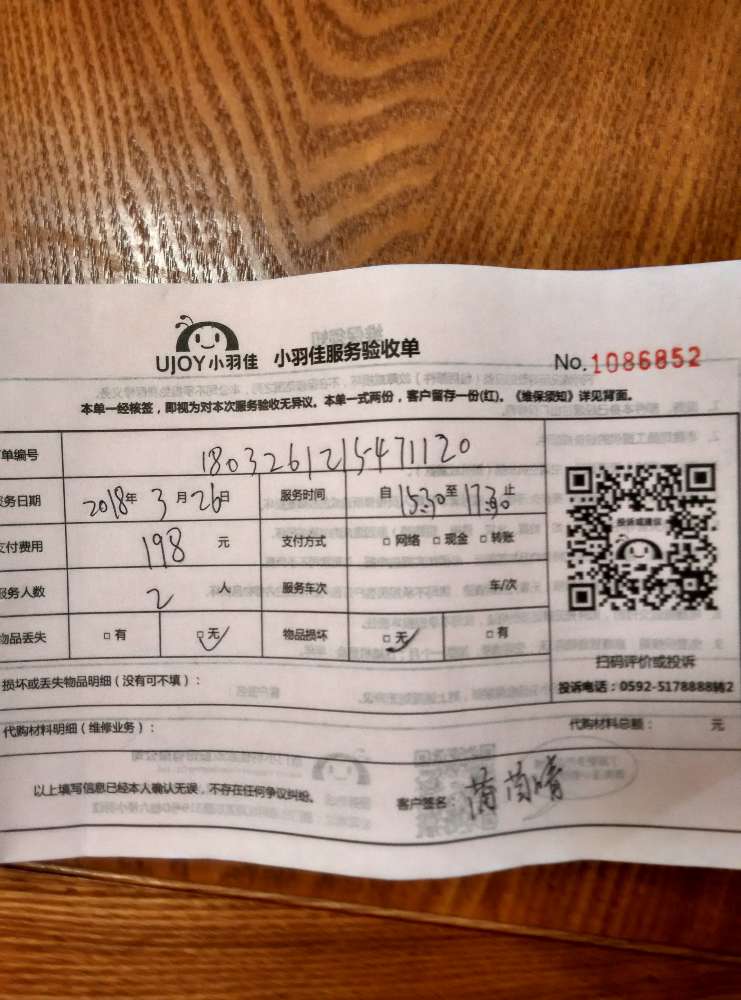 UJOY小羽佳 小羽佳服务验收单
No.1086852
本单一经核签，即视为对本次服务验收无异议。本单一式两份，客户留存一份(红)。《维保须知》详见背面。
单编号 1803261215471120
务日期 2018年 3月26日 服务时间 自15:30至17:30止
付费用 198 元 支付方式 □网络 □现金 □转账
服务人数 2 人 服务车次 车/次
物品丢失 □有 □无 物品损坏 □无 □有
投诉或建议
扫码评价或投诉
投诉电话：0592-5178888转2
损坏或丢失物品明细（没有可不填）：
代购材料明细（维修业务）： 代购材料总额： 元
以上填写信息已经本人确认无误，不存在任何争议纠纷。 客户签名：